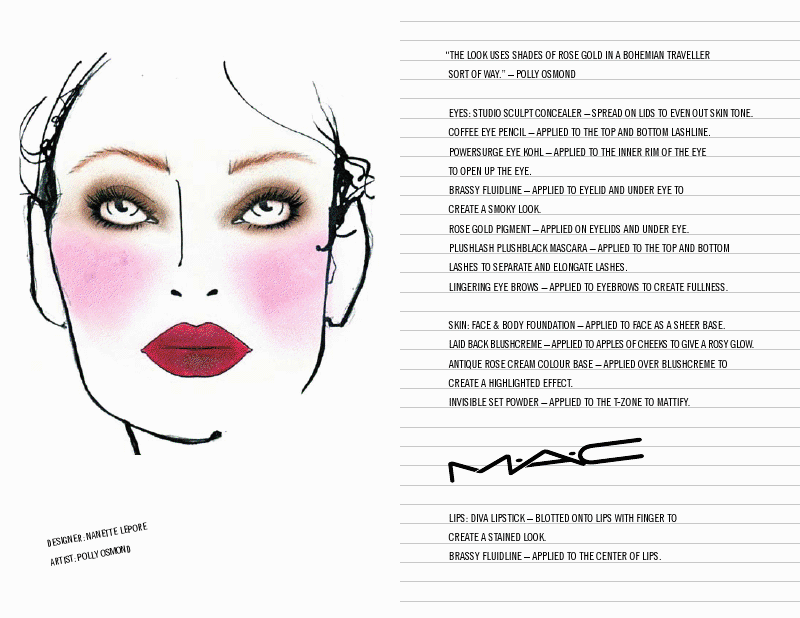 “THE LOOK USES SHADES OF ROSE GOLD IN A BOHEMIAN TRAVELLER
SORT OF WAY.” – POLLY OSMOND
EYES: STUDIO SCULPT CONCEALER – SPREAD ON LIDS TO EVEN OUT SKIN TONE.
COFFEE EYE PENCIL – APPLIED TO THE TOP AND BOTTOM LASHLINE.
POWERSURGE EYE KOHL – APPLIED TO THE INNER RIM OF THE EYE
TO OPEN UP THE EYE.
BRASSY FLUIDLINE – APPLIED TO EYELID AND UNDER EYE TO
CREATE A SMOKY LOOK.
ROSE GOLD PIGMENT – APPLIED ON EYELIDS AND UNDER EYE.
PLUSHLASH PLUSHBLACK MASCARA – APPLIED TO THE TOP AND BOTTOM
LASHES TO SEPARATE AND ELONGATE LASHES.
LINGERING EYE BROWS – APPLIED TO EYEBROWS TO CREATE FULLNESS.
SKIN: FACE & BODY FOUNDATION – APPLIED TO FACE AS A SHEER BASE.
LAID BACK BLUSHCREME – APPLIED TO APPLES OF CHEEKS TO GIVE A ROSY GLOW.
ANTIQUE ROSE CREAM COLOUR BASE – APPLIED OVER BLUSHCREME TO
CREATE A HIGHLIGHTED EFFECT.
INVISIBLE SET POWDER – APPLIED TO THE T-ZONE TO MATTIFY.
M·A·C
LIPS: DIVA LIPSTICK – BLOTTED ONTO LIPS WITH FINGER TO
CREATE A STAINED LOOK.
BRASSY FLUIDLINE – APPLIED TO THE CENTER OF LIPS.
DESIGNER: NANETTE LEPORE
ARTIST: POLLY OSMOND